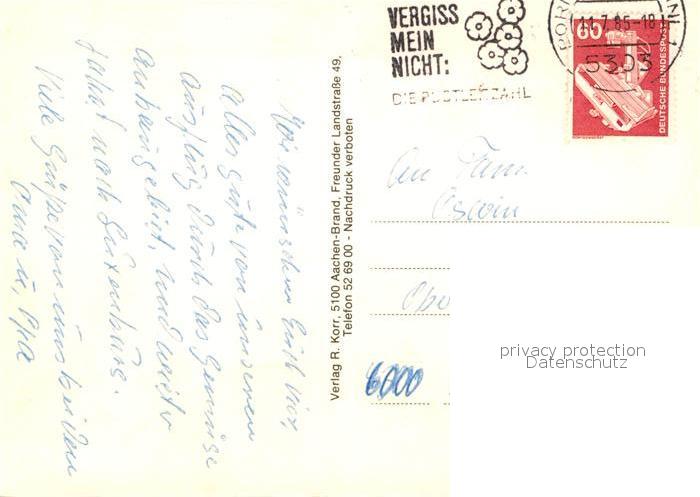 VERGISS
MEIN
NICHT:
DIE POSTLEITZAHL
11.7.85-18
5303
60
DEUTSCHE BUNDESPOST
Wir wünschen Euch
alles gute von unserem
Ausflug durch das
und weiter
fahrt nach Luxenburg.
Viele Grüße von uns beiden
Oma u, Opa
Verlag R. Korr, 5100 Aachen-Brand, Freunder Landstraße 49,
Telefon 52 69 00 - Nachdruck verboten
An Fam.
6000
privacy protection
Datenschutz